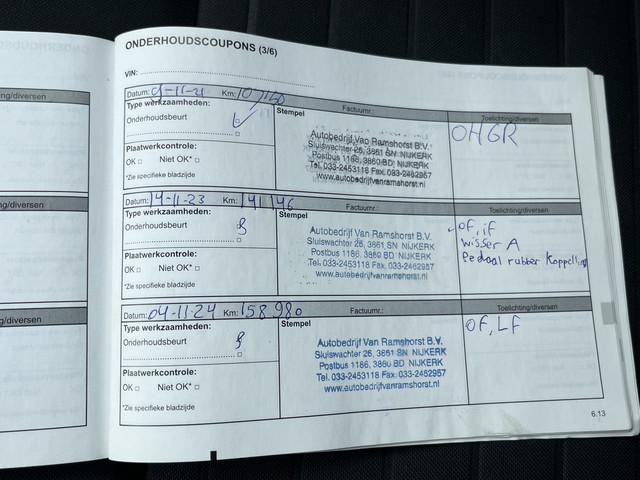 ONDERHOUDSCOUPONS (3/6)
VIN:
ng/diversen
Datum: 9-11-21 Km: 107160 Factuurnr.: Toelichting/diversen
Type werkzaamheden:
Onderhoudsbeurt
Plaatwerkcontrole:
OK □ Niet OK* □
*Zie specifieke bladzijde
Stempel
Autobedrijf Van Ramshorst B.V.
Sluiswachter 26, 3861 SN NIJKERK
Postbus 1186, 3860 BD NIJKERK
Tel. 033-2453118 Fax. 033-2462957
www.autobedrijfvanramshorst.nl
OHGR
ng/diversen
Datum: 14-11-23 Km: 141146 Factuurnr.: Toelichting/diversen
Type werkzaamheden:
Onderhoudsbeurt
Plaatwerkcontrole:
OK □ Niet OK* □
*Zie specifieke bladzijde
Stempel
Autobedrijf Van Ramshorst B.V.
Sluiswachter 26, 3861 SN NIJKERK
Postbus 1186, 3860 BD NIJKERK
Tel. 033-2453118 Fax. 033-2462957
www.autobedrijfvanramshorst.nl
OF, if
wisser A
Pedaal rubber Koppeling
g/diversen
Datum: 04-11-24 Km: 158.980 Factuurnr.: Toelichting/diversen
Type werkzaamheden:
Onderhoudsbeurt
Plaatwerkcontrole:
OK □ Niet OK* □
*Zie specifieke bladzijde
Stempel
Autobedrijf Van Ramshorst B.V.
Sluiswachter 26, 3861 SN NIJKERK
Postbus 1186, 3860 BD NIJKERK
Tel. 033-2453118 Fax. 033-2462957
www.autobedrijfvanramshorst.nl
OF, LF
6.13